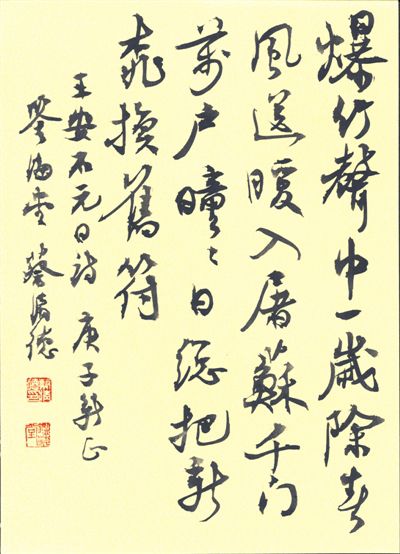 爆竹聲中一歲除春
風送暖入屠蘇千门
萬戶曈〻日總把新
桃換舊符
王安石元日詩 庚子新正
蔡德